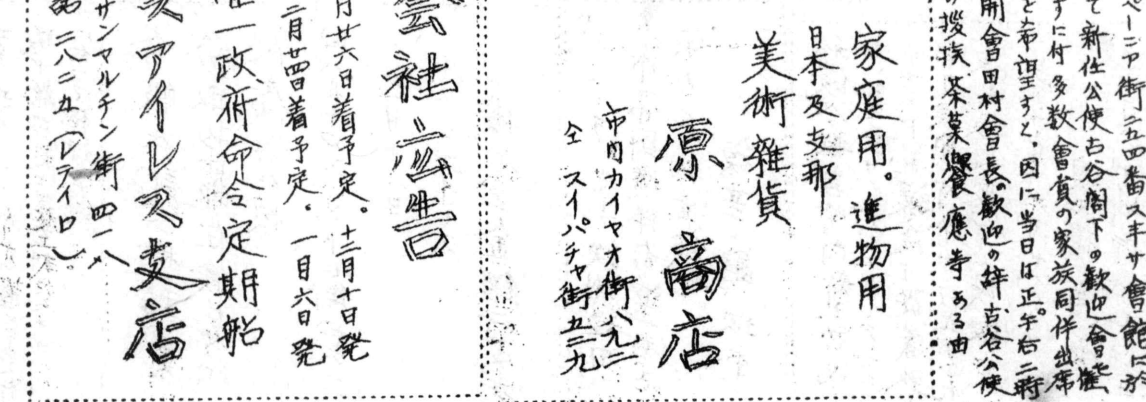 ベーニア街二五四番スキサ會館に於
て新任公使古谷閣下の歓迎會を催
すに付多数會員の家族同伴出席
を希望すと。因に当日は正午右二時
開會田村會長の歓迎の辞、古谷公使
の挨拶、茶菓饗應等ある由
家庭用。進物用
日本及支那
美術雑貨
原商店
市内カイヤオ街八九二
仝 スイパチャ街五二九
会社広告
月廿六日着予定。十二月十日発
二月廿四日着予定。一月六日発
一政府命令定期船
スアイレス支店
サンマルチン街四一八
二八二九(レテイロ)